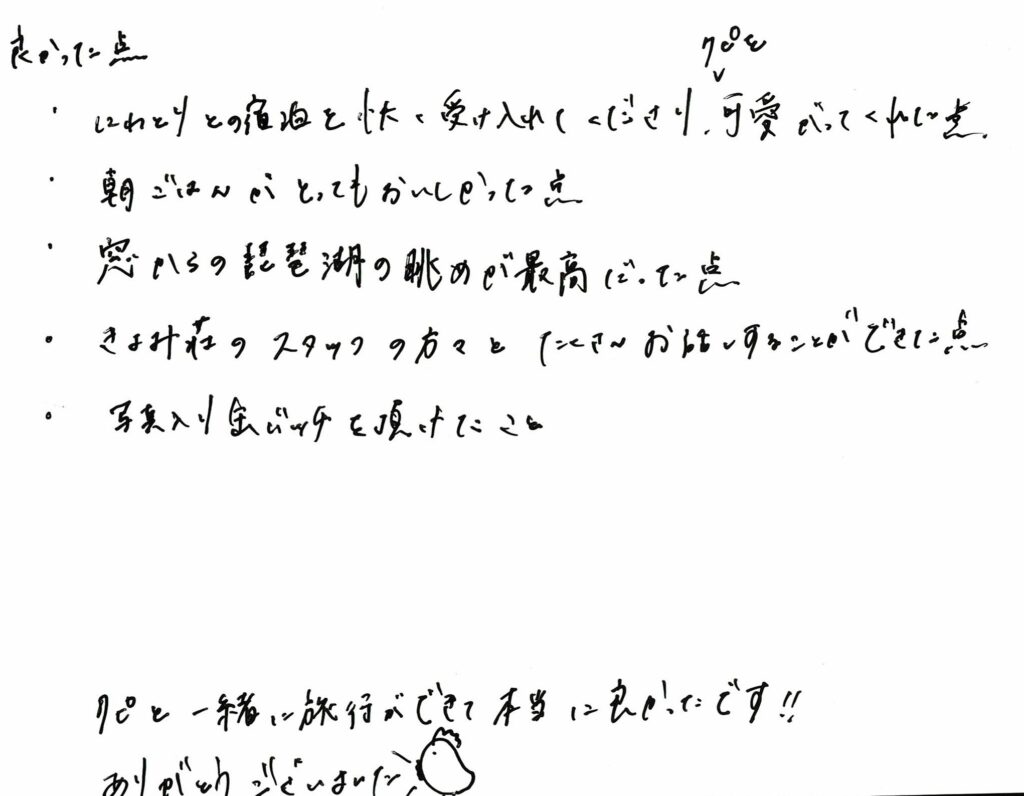 良かった点
クピを
・にわとりとの宿泊を快く受け入れてくださり、可愛がってくれた点。
・朝ごはんがとってもおいしかった点
・窓からの琵琶湖の眺めが最高だった点
・きよみ荘のスタッフの方々とたくさんお話しすることができた点
・写真入り缶バッチを頂けたこと
クピと一緒に旅行ができて本当に良かったです!!
ありがとうございました